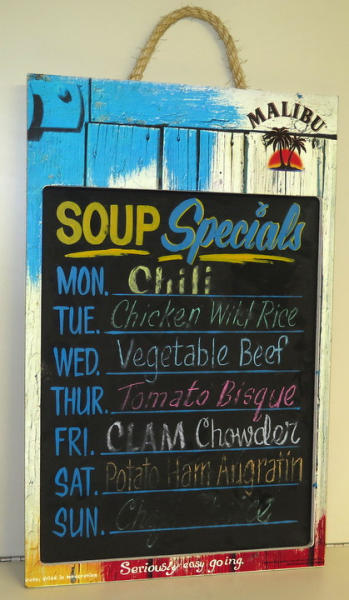 MALIBU
SOUP Specials
MON. Chili
TUE. Chicken Wild Rice
WED. Vegetable Beef
THUR. Tomato Bisque
FRI. CLAM Chowder
SAT. Potato Ham Augratin
SUN.
Seriously easy going.